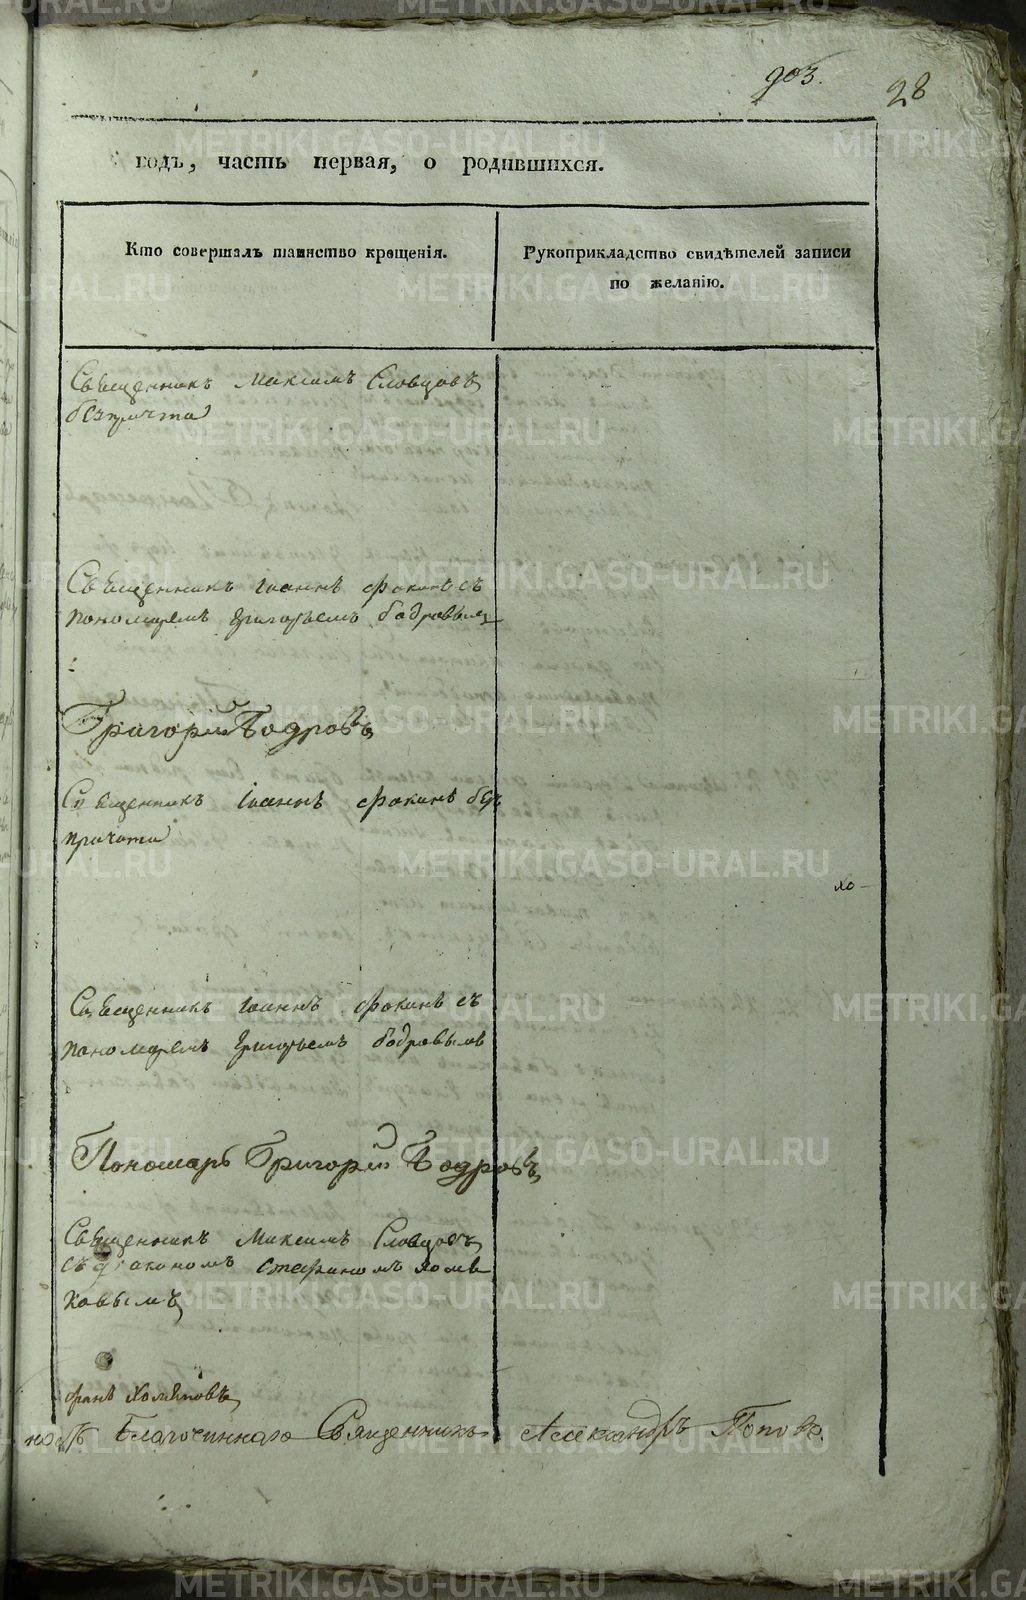 903.
28
годъ, часть первая, о родившихся.
Кто совершалъ таинство крещенія.
Рукоприкладство свидѣтелей записи
по желанію.
Священникъ Максимъ Словцовъ
безпричта
Священникъ Іоаннъ Фокинъ съ
пономаремъ Григорьемъ бодровымъ
Григорій Бодровъ
Священникъ Іоаннъ Фокинъ безъ
причта
хо
Священникъ Іоаннъ Фокинъ съ
пономаремъ Григорьемъ бодровымъ
Пономарь Григорій Бодровъ
Священникъ Максимъ Словцовъ
съ діакономъ Стефаномъ хомя
ковымъ
Хомяковъ
Благочиннаго Священникъ Александръ Поповъ.
METRIKI.GASO-URAL.RU